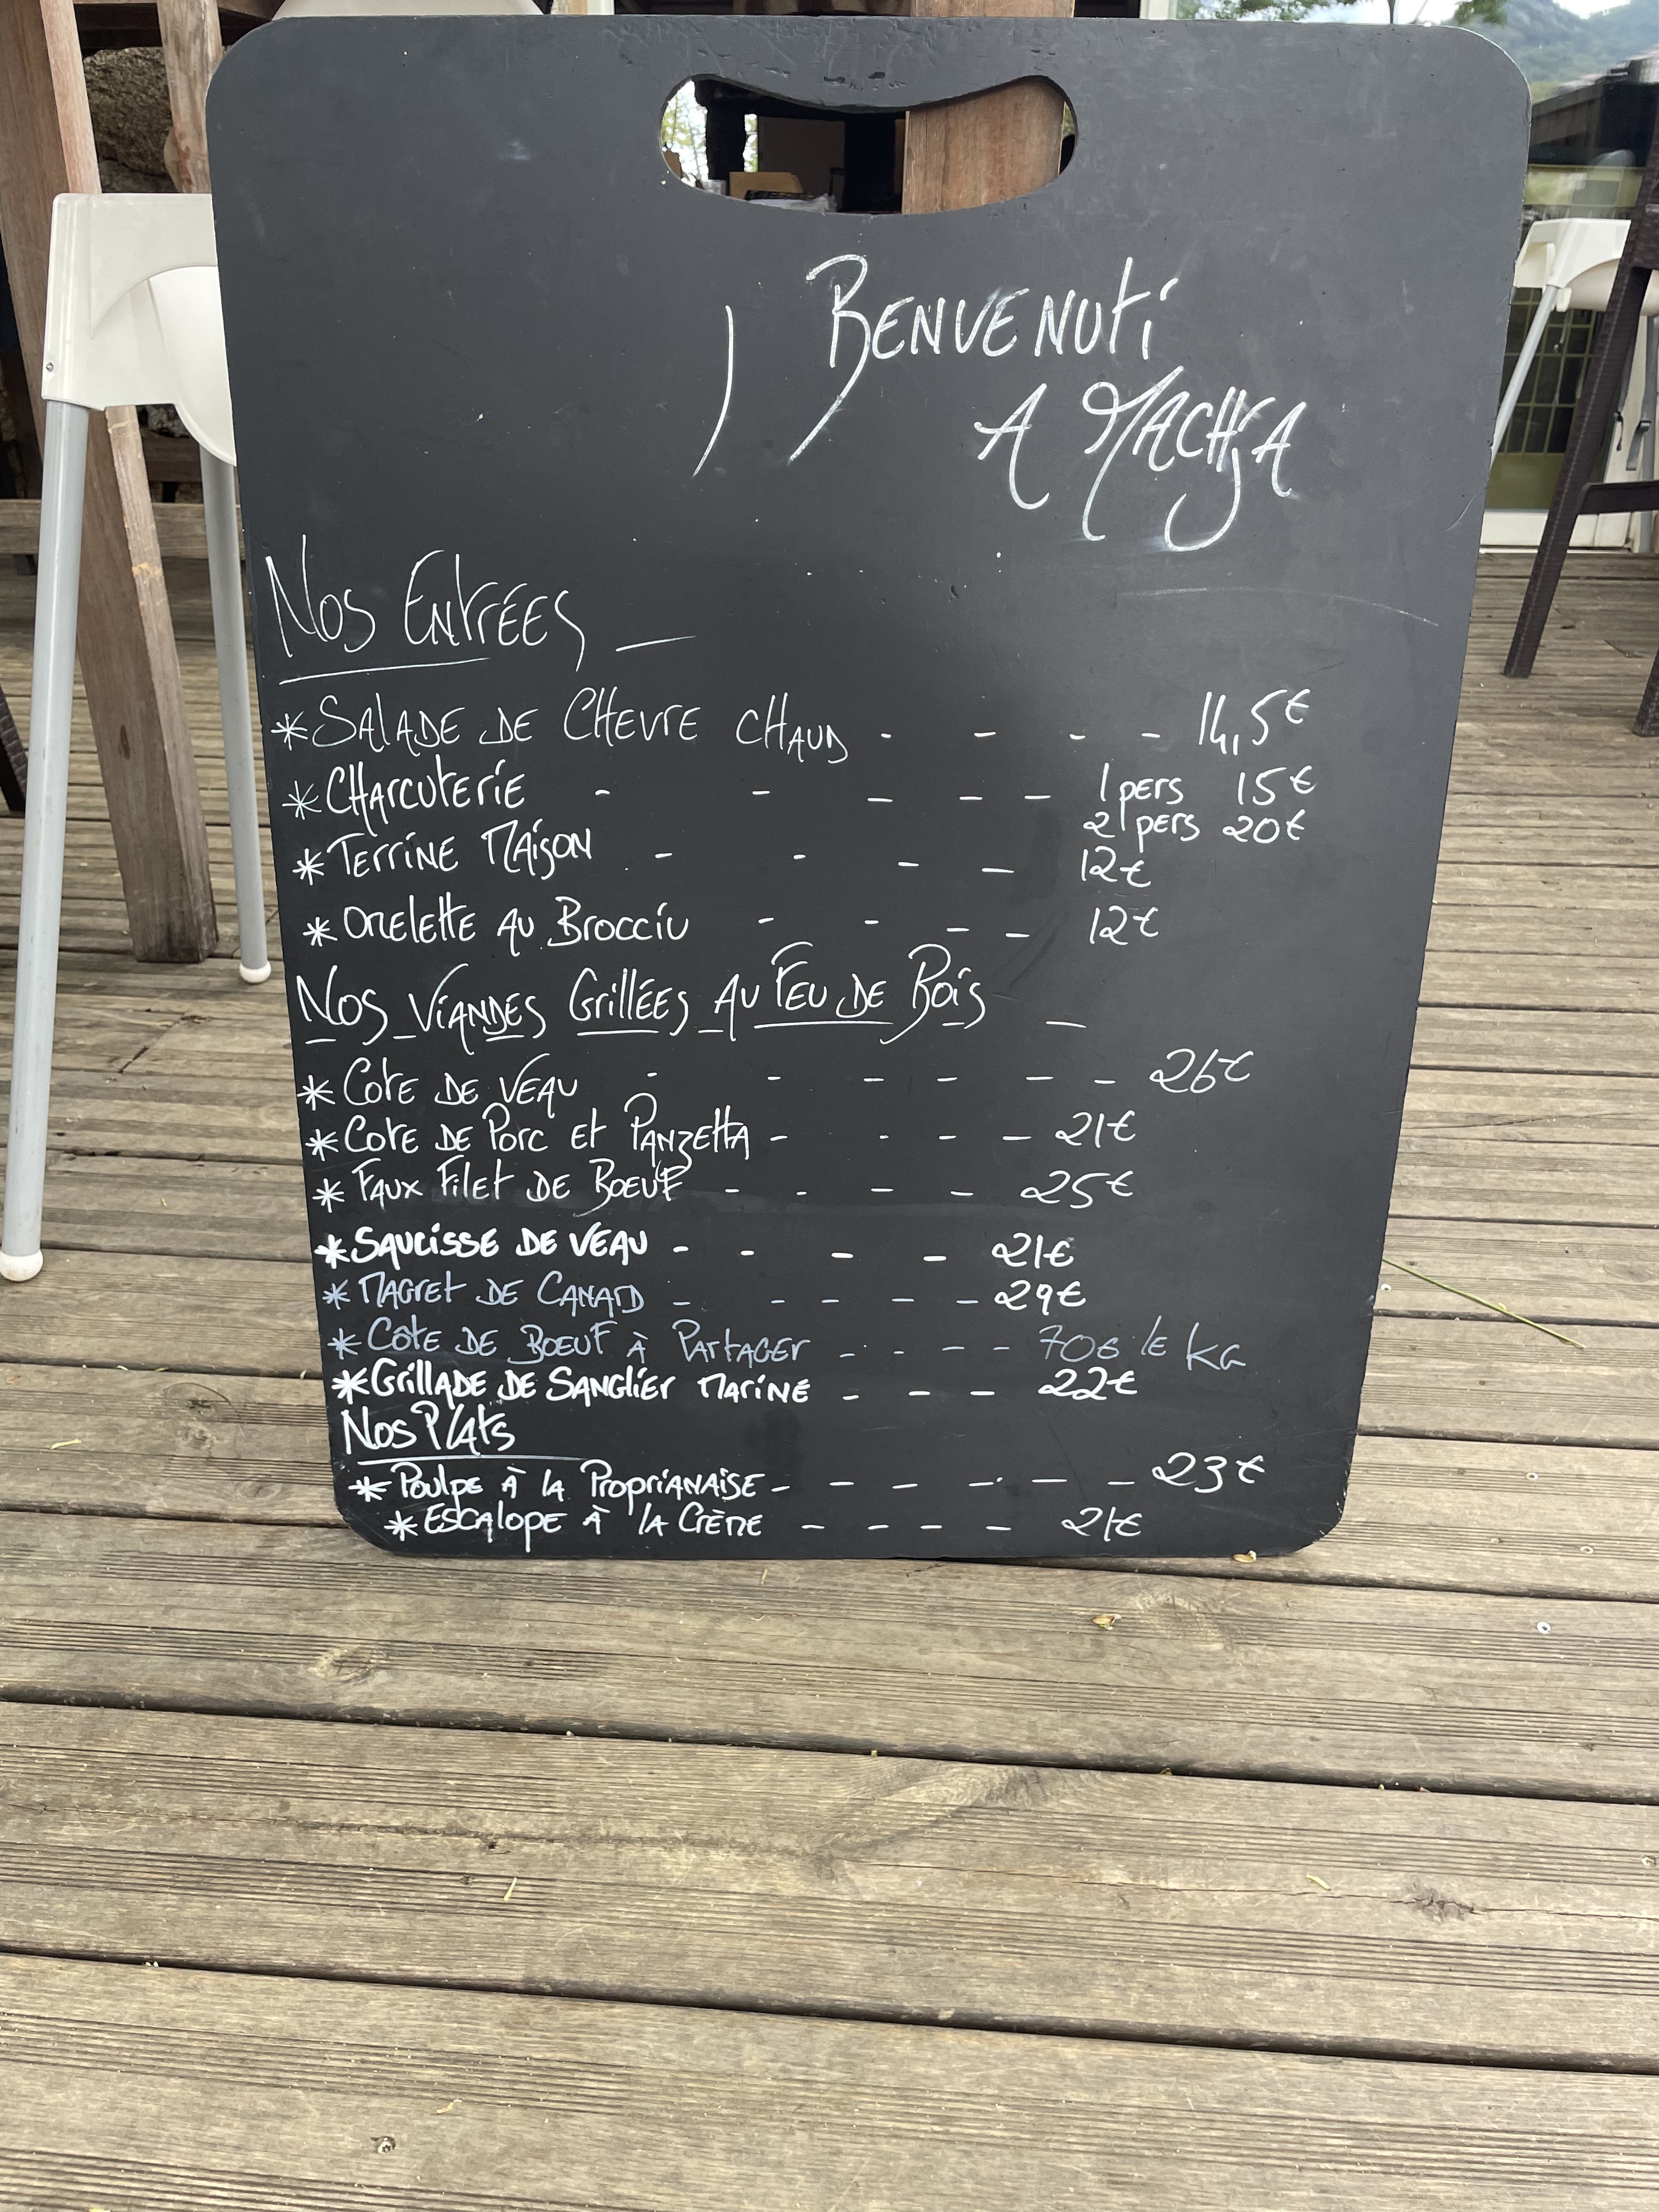 Benvenuti
A Machja
Nos Entrées
* Salade de Chevre chaud - - - - 14,5€
* Charcuterie - - - - - 1 pers 15€
2 pers 20€
* Terrine Maison - - - - 12€
* Omelette au Brocciu - - - - 12€
Nos Viandes Grillées au Feu de Bois
* Cote de veau - - - - - - 26€
* Cote de Porc et Panzetta - - - - 21€
* Faux Filet de Boeuf - - - - 25€
* Saucisse de veau - - - - 21€
* Magret de Canard - - - - - 29€
* Côte de Boeuf à Partager - - - - 70€ le kg
* Grillade de Sanglier Mariné - - - 22€
Nos Plats
* Poulpe à la Proprianaise - - - - - - 23€
* Escalope à la Crème - - - - 21€